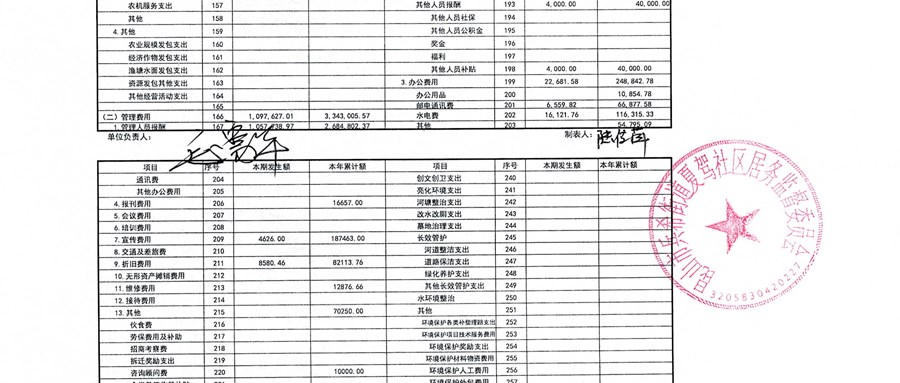 农机服务支出 157 其他人员报酬 193 4,000.00 40,000.00
其他 158 其他人员社保 194
4. 其他 159 其他人员公积金 195
农业规模发包支出 160 奖金 196
经济作物发包支出 161 福利 197
渔塘水面发包支出 162 其他人员补贴 198 4,000.00 40,000.00
资源发包其他支出 163 3. 办公费用 199 22,681.58 248,842.78
其他经营活动支出 164 办公用品 200 10,854.78
165 邮电通讯费 201 6,559.82 66,877.58
(二) 管理费用 166 1,097,627.01 3,343,005.57 水电费 202 16,121.76 116,315.33
1. 管理人员报酬 167 1,057,738.97 2,684,802.37 其他 203 54,795.09
单位负责人： 制表人：
项目 序号 本期发生额 本年累计额 项目 序号 本期发生额 本年累计额
通讯费 204 创文创卫支出 240
其他办公费用 205 亮化环境支出 241
4. 报刊费用 206 16657.00 河塘整治支出 242
5. 会议费用 207 改水改厕支出 243
6. 培训费用 208 墓地治理支出 244
7. 宣传费用 209 4626.00 187463.00 长效管护 245
8. 交通及差旅费 210 河道整治支出 246
9. 折旧费用 211 8580.46 82113.76 道路保洁支出 247
10. 无形资产摊销费用 212 绿化养护支出 248
11. 维修费用 213 12876.66 其他长效管护支出 249
12. 接待费用 214 水环境整治 250
13. 其他 215 70250.00 其他 251
伙食费 216 环境保护各类补偿理赔支出 252
劳保费用及补助 217 环境保护项目技术服务费用 253
招商考察费 218 环境保护奖励支出 254
拆迁奖励支出 219 环境保护材料物资费用 255
咨询顾问费 220 10000.00 环境保护人工费用 256
环境保护外包费用 257
昆山市兵希街道夏驾社区居务监督委员会
3205830420227